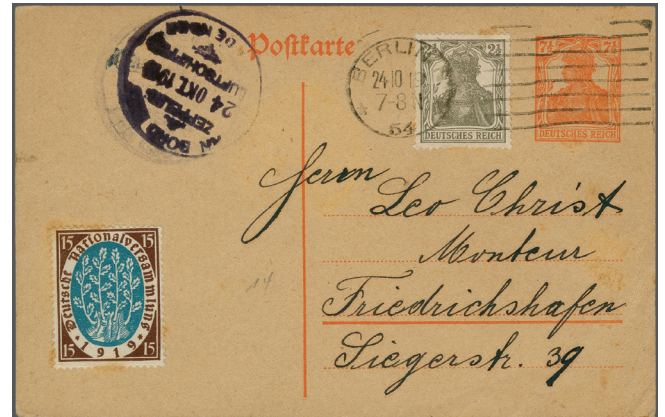 Postkarte
AN BORD
ZEPPELIN
24 OKT. 1919
LUFTSCHIFFES
BERLIN
24 10 19
7-8 N
54
2½
DEUTSCHES REICH
7½ 7½
DEUTSCHES REICH
Herrn
Leo Christ
Monteur
Friedrichshafen
Siegerstr. 39
14
15 15
Deutsche Nationalversammlung
1919
15 15